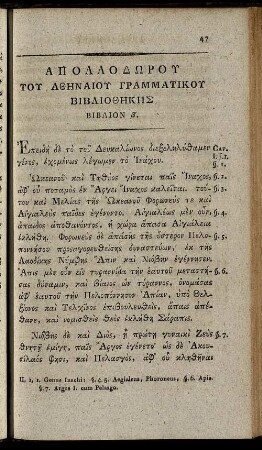 47
ΑΠΟΛΛΟΔΩΡΟΥ
ΤΟΥ ΑΘΗΝΑΙΟΥ ΓΡΑΜΜΑΤΙΚΟΥ
ΒΙΒΛΙΟΘΗΚΗΣ
ΒΙΒΛΙΟΝ β.
Ἐπειδὴ δὲ τὸ τοῦ Δευκαλίωνος διεξεληλύθαμεν Cap.
γένος, ἐχομένως λέγωμεν τὸ Ἰνάχου. I. §.1.
Ὠκεανοῦ καὶ Τηθύος γίνεται παῖς Ἴναχος, §. 2.
ἀφ' οὗ ποταμὸς ἐν Ἄργει Ἴναχος καλεῖται. τού-
του καὶ Μελίας τῆς Ὠκεανοῦ Φορωνεύς τε καὶ §. 3.
Αἰγιαλεὺς παῖδες ἐγένοντο. Αἰγιαλέως μὲν οὖν §. 4.
ἄπαιδος ἀποθανόντος, ἡ χώρα ἅπασα Αἰγιάλεια
ἐκλήθη. Φορωνεὺς δὲ ἁπάσης τῆς ὕστερον Πελο- §. 5.
ποννήσου προσαγορευθείσης δυναστεύων, ἐκ τῆς
Λαοδίκης Νύμφης Ἆπιν καὶ Νιόβην ἐγέννησεν.
Ἆπις μὲν οὖν εἰς τυραννίδα τὴν ἑαυτοῦ μεταστή- §. 6.
σας δύναμιν, καὶ βίαιος ὢν τύραννος, ὀνομάσας
ἀφ' ἑαυτοῦ τὴν Πελοπόννησον Ἀπίαν, ὑπὸ Θελ-
ξίονος καὶ Τελχῖνος ἐπιβουλευθεὶς, ἄπαις ἀπέ-
θανε, καὶ νομισθεὶς θεὸς ἐκλήθη Σάραπις.
Νιόβης δὲ καὶ Διὸς, ᾗ πρώτῃ γυναικὶ Ζεὺς §. 7.
θνητῇ ἐμίγη, παῖς Ἄργος ἐγένετο· ὡς δὲ Ἀκου-
σίλαός φησι, καὶ Πελασγὸς, ἀφ' οὗ κληθῆναι
II. I, 1. Genus Inachi: §. 4. 5. Aegialeus, Phoroneus, §. 6. Apis.
§. 7. Argus I. cum Pelasgo.